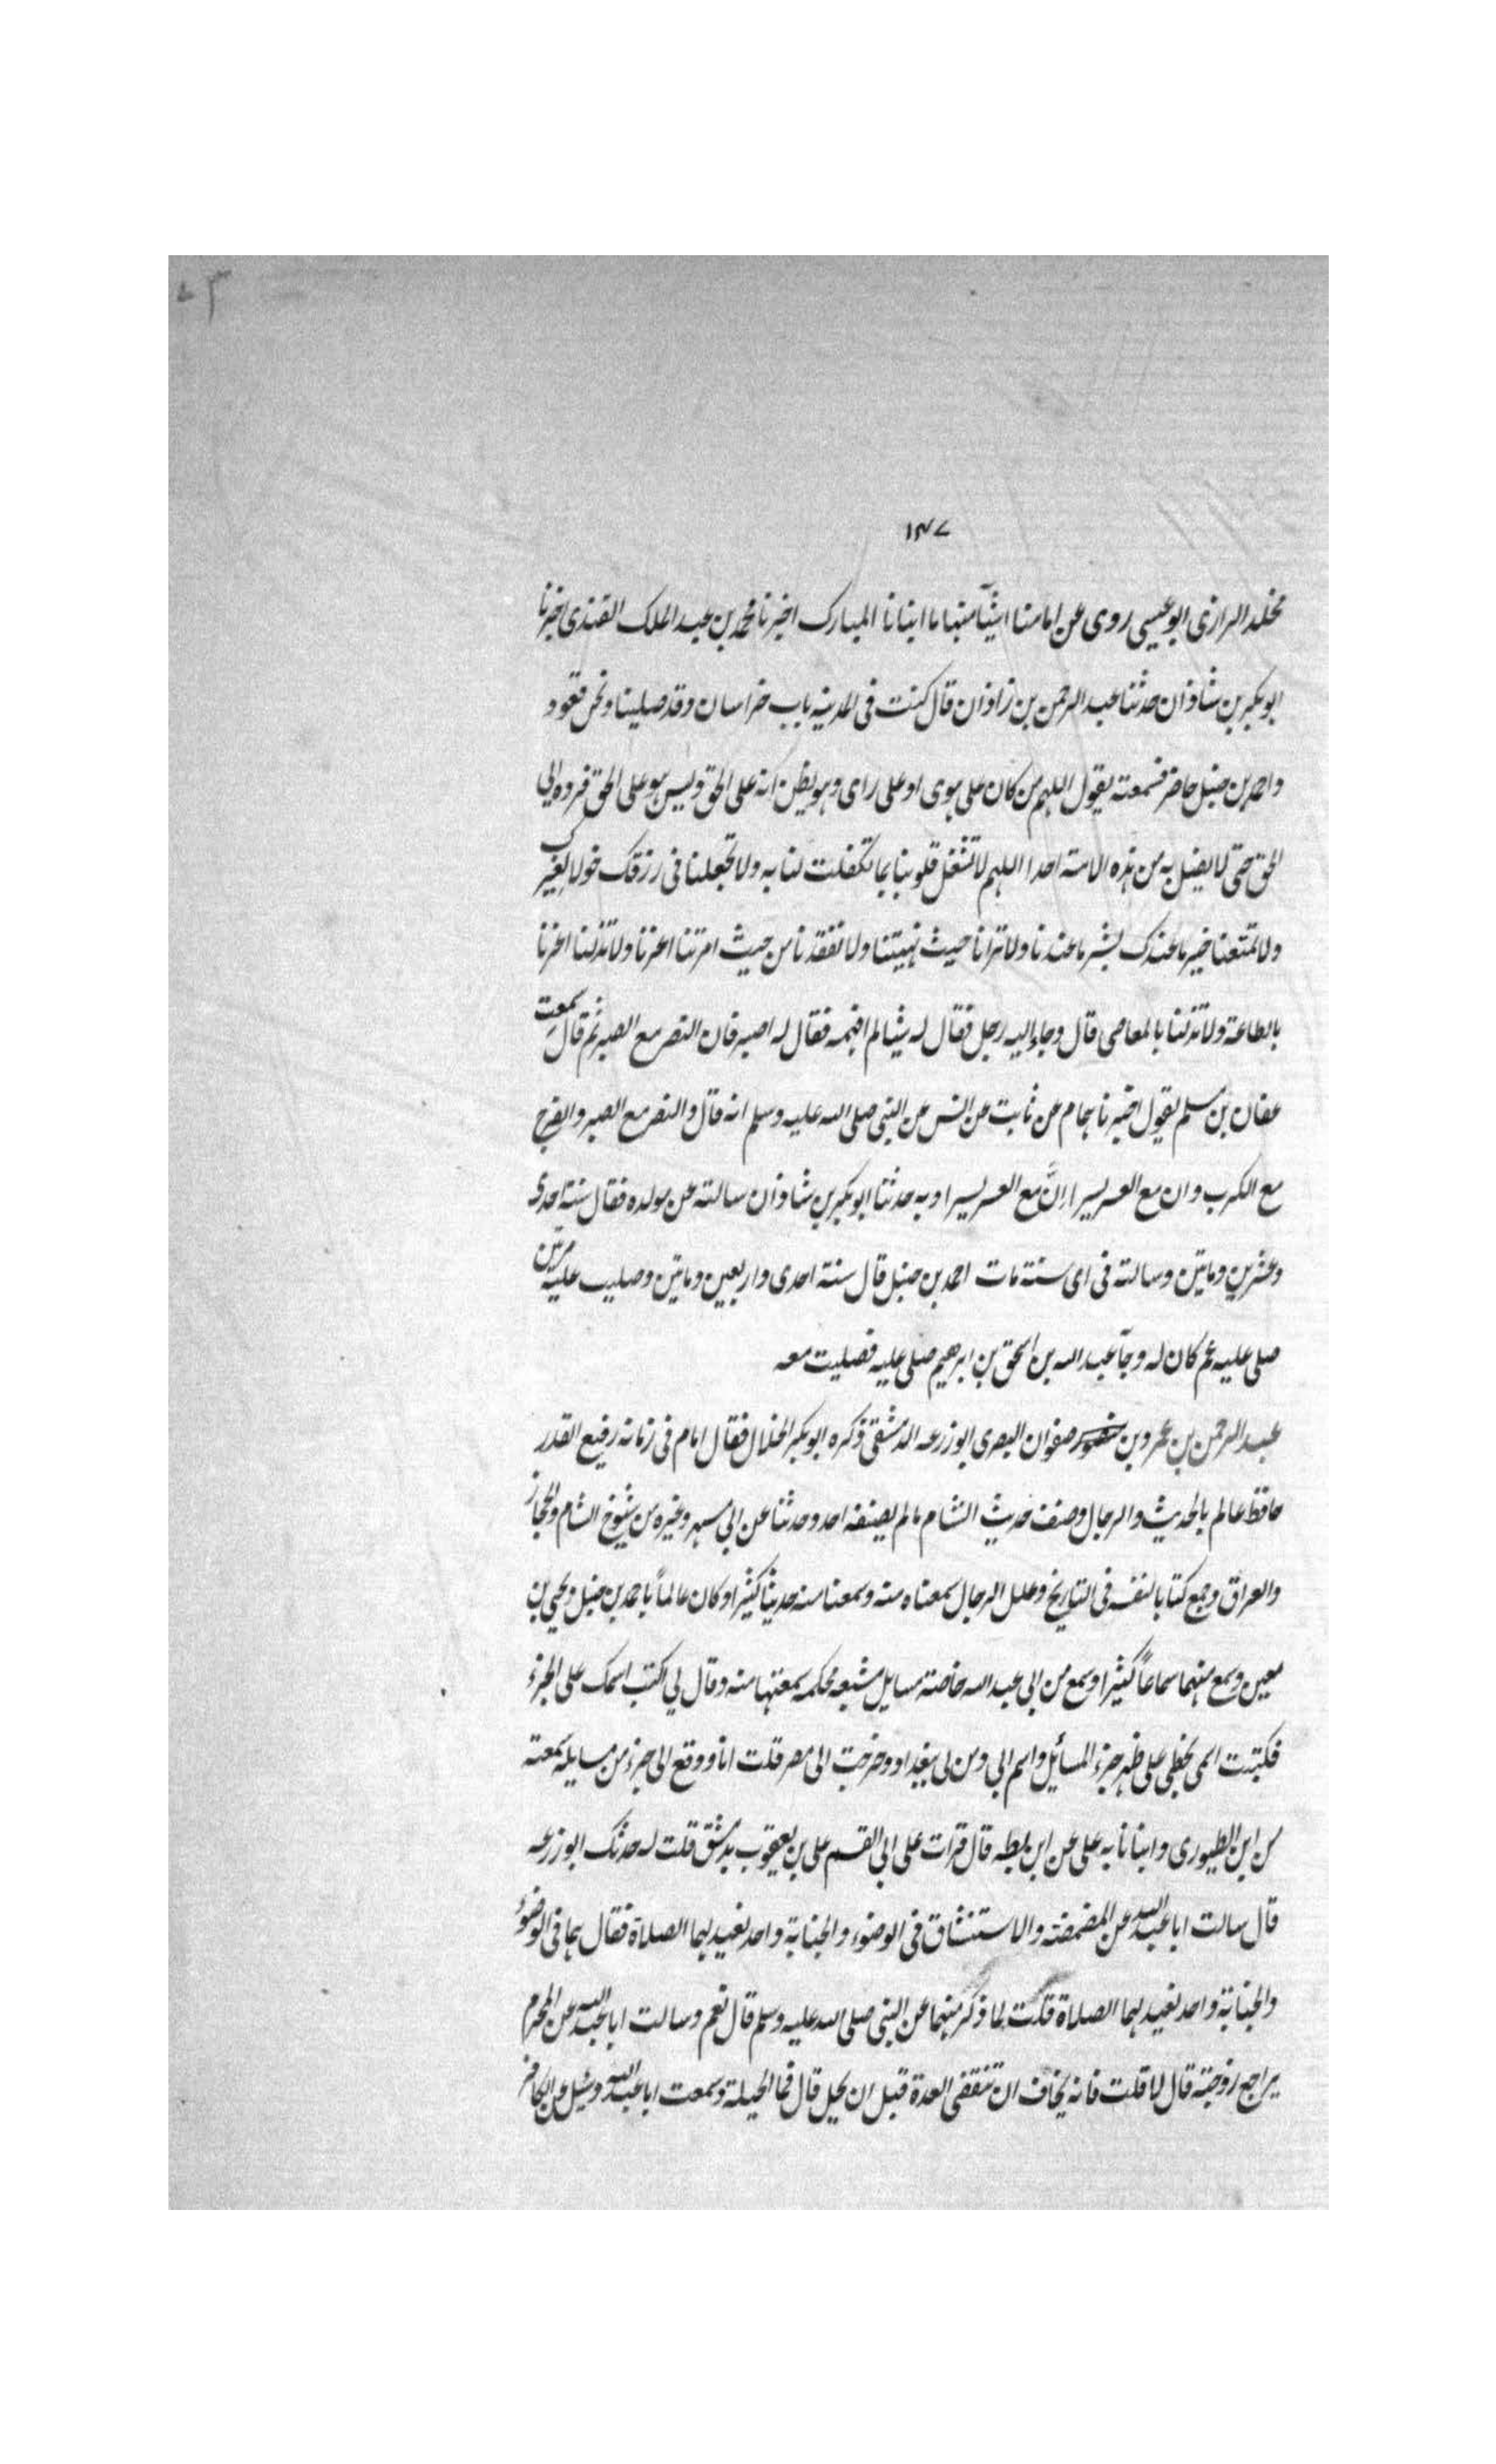 ١٤٧
مخلد الرازى ابو عيسى روى عن امامنا اشيآ منها ما انبانا المبارك اخبرنا محمد بن عبد الملك القندى اخبرنا
ابو بكر بن شاذان حدثنا عبد الرحمن بن زاذان قال كنت فى المدينه باب خراسان وقد صلينا ونحن قعود
واحمد بن حنبل حاضر فسمعته يقول اللهم من كان على هوى او على راى وهو يظن انه على الحق وليس هو على الحق فرده الى
الحق حتى لا يضل به من هذه الامة احدا اللهم لا تشغل قلوبنا بما تكفلت لنا به ولا تجعلنا فى رزقك خولا لغيرك
ولا تمنعنا خير ما عندك بشر ما عندنا ولا ترانا حيث نهيتنا ولا تفقدنا من حيث امرتنا اعزنا ولا تذلنا اعزنا
بالطاعة ولا تذلنا بالمعاصى قال وجاء اليه رجل فقال له شيئا لم افهمه فقال له اصبر فان النصر مع الصبر ثم قال سمعت
عفان بن مسلم يقول اخبرنا همام عن ثابت عن انس عن النبى صلى الله عليه وسلم انه قال والنصر مع الصبر والفرج
مع الكرب وان مع العسر يسرا اِنَّ مع العسر يسرا وبه حدثنا ابو بكر بن شاذان سالته عن مولده فقال سنة احدى
وعشرين وماتين وسالته فى اى سنة مات احمد بن حنبل قال سنة احدى واربعين وماتين وصليت عليه مرتين
صلى عليه عم كان له وجآ عبد الله بن اسحق بن ابرهيم صلى عليه فصليت معه
عبد الرحمن بن عمرو بن صفوان البصرى ابو زرعه الدمشقى ذكره ابو بكر الخلال فقال امام فى زمانه رفيع القدر
حافظ عالم بالحديث والرجال وصنف حديث الشام ما لم يصنفه احد وحدثنا عن ابى مسهر وغيره من شيوخ الشام والحجاز
والعراق وجمع كتابا لنفسه فى التاريخ وعلل الرجال سمعناه منه وسمعنا منه حديثاً كثيرا وكان عالماً باحمد بن حنبل ويحيى بن
معين وسمع منهما سماعاً كثيرا وسمع من ابى عبد الله خاصة مسايل مشبعه محكمه سمعتها منه وقال لي اكتب اسمك على الجزء
فكتبت اسمى بخطى على ظهر جزء المسائل واسم ابى ومن لى ببغداد وخرجت الى مصر قلت انا ووقع الى جزء من مسايله سمعته
من ابن الطيورى وانبانا به على عن ابن بطه قال قرات على ابى القسم على بن يعقوب بدمشق قلت له حدثك ابو زرعه
قال سالت ابا عبد الله عن المضمضة والاستنشاق فى الوضوء والجنابة واحد نعيد لهما الصلاة فقال هما فى الوضوء
والجنابة واحد نعيد لهما الصلاة قلت لما ذكر منهما عن النبى صلى الله عليه وسلم قال نعم وسالت ابا عبد الله عن المحرم
يراجع زوجته قال لا قلت فانه يخاف ان تنقضى العدة قبل ان يحل قال فما الحيلة وسمعت ابا عبد الله وسئل عن الكافر